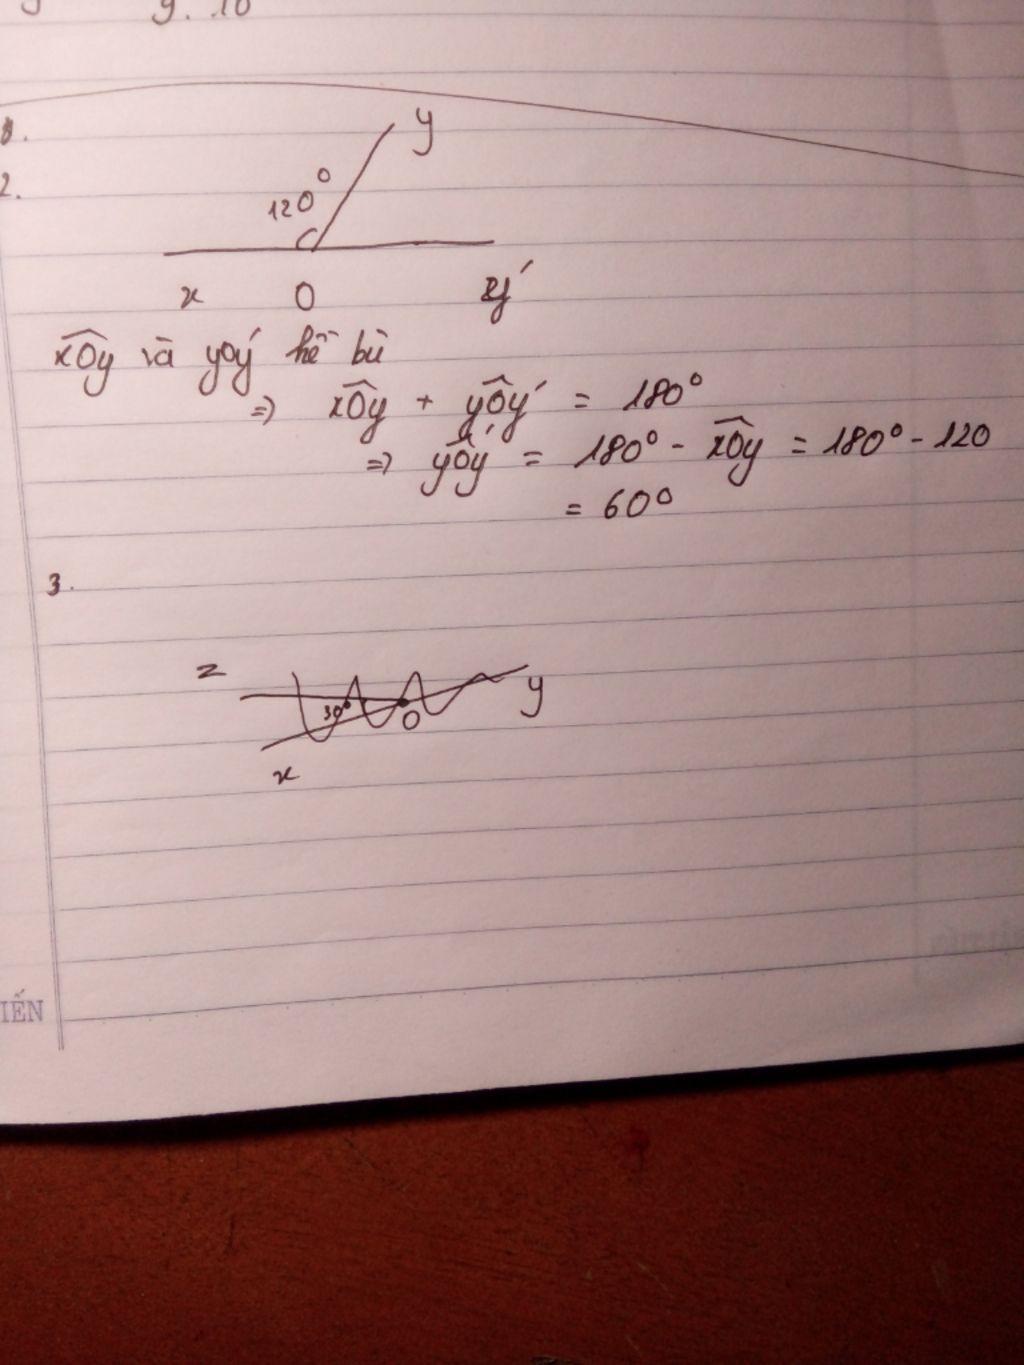 9.10
2.
y
120°
x O y'
xOy và yOy' kề bù
=> xOy + yOy' = 180°
=> yOy' = 180° - xOy = 180° - 120
= 60°
3.
z
y
30°
O
x
IẾN